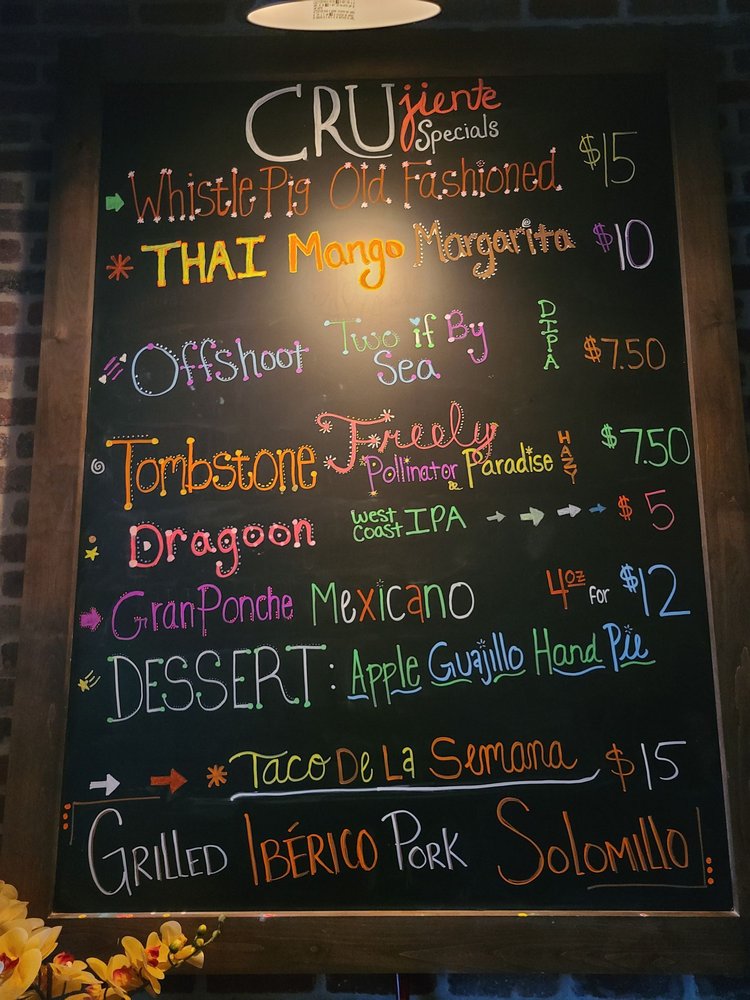 CRUjiente
Specials
WhistlePig Old Fashioned $15
THAI Mango Margarita $10
Offshoot Two if By Sea DIPA $7.50
Tombstone Freely Pollinator Paradise HAZY $7.50
Dragoon West Coast IPA $5
GranPonche Mexicano 4oz for $12
DESSERT: Apple Guajillo Hand Pie
Taco De La Semana $15
Grilled Ibérico Pork Solomillo